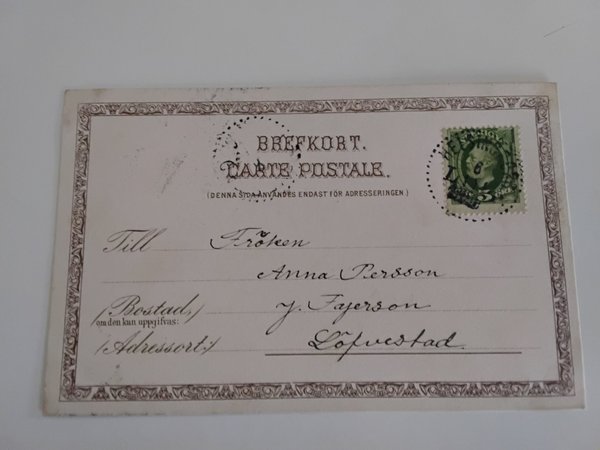 BREFKORT.
CARTE POSTALE.
(DENNA SIDA ANVÄNDES ENDAST FÖR ADRESSERINGEN)
Till Fröken
Anna Persson
(Bostad,) y. Fajerson
om den kan uppgifvas:
(Adressort:) Löfvestad.